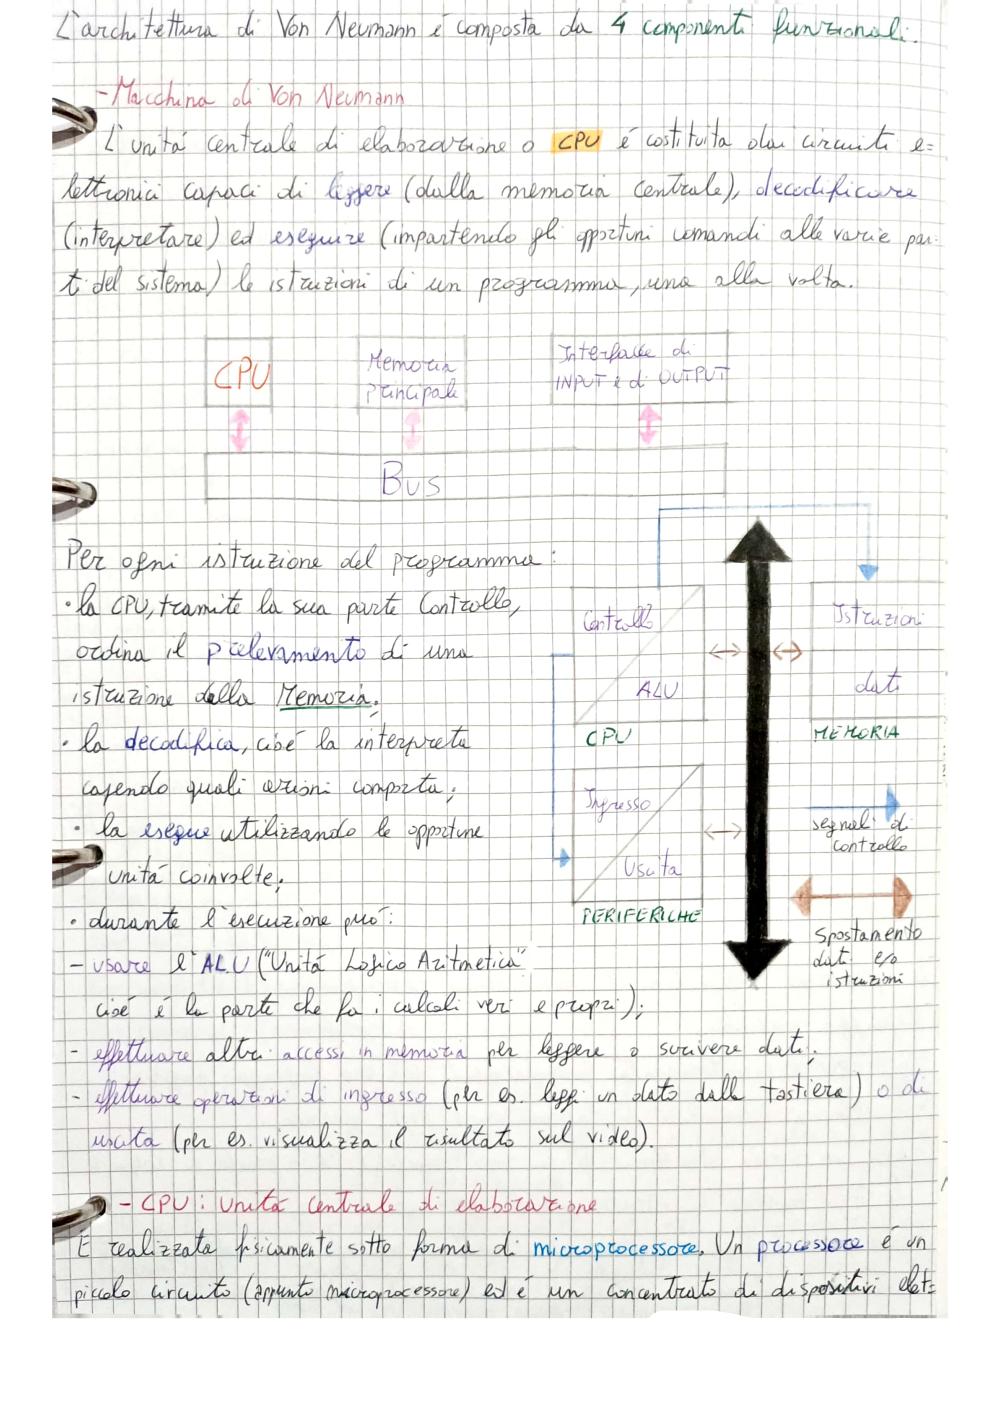 L'architettura di Von Neumann é composta da 4 componenti funzionali.
- Macchina di Von Neumann
L'unitá centrale di elaborazione o CPU é costituita dai circuiti e=
lettronici capaci di leggere (dalla memoria centrale), decodificare
(interpretare) ed eseguire (impartendo gli opportuni comandi alle varie par-
ti del sistema) le istruzioni di un programma, una alla volta.
CPU
Memoria
principale
Interfacce di
INPUT e di OUTPUT
Bus
Per ogni istruzione del programma:
• la CPU, tramite la sua parte Controllo,
ordina il prelevamento di una
istruzione dalla Memoria;
• la decodifica, cioé la interpreta
capendo quali azioni comporta;
• la esegue utilizzando le opportune
unitá coinvolte;
• durante l'esecuzione puó:
- usare l'ALU ("Unitá Logico Aritmetica"
cioé é la parte che fa i calcoli veri e propri);
- effettuare altri accessi in memoria per leggere o scrivere dati;
- effettuare operazioni di ingresso (per es. leggi un dato dalla tastiera) o di
uscita (per es. visualizza il risultato sul video).
Controllo
ALU
CPU
Istruzioni
dati
MEMORIA
Ingresso
Uscita
PERIFERICHE
segnali di
controllo
Spostamento
dati e/o
istruzioni
- CPU: Unitá centrale di elaborazione
É realizzata fisicamente sotto forma di microprocessore. Un processore é un
piccolo circuito (appunto microprocessore) ed é un concentrato di dispositivi elet=